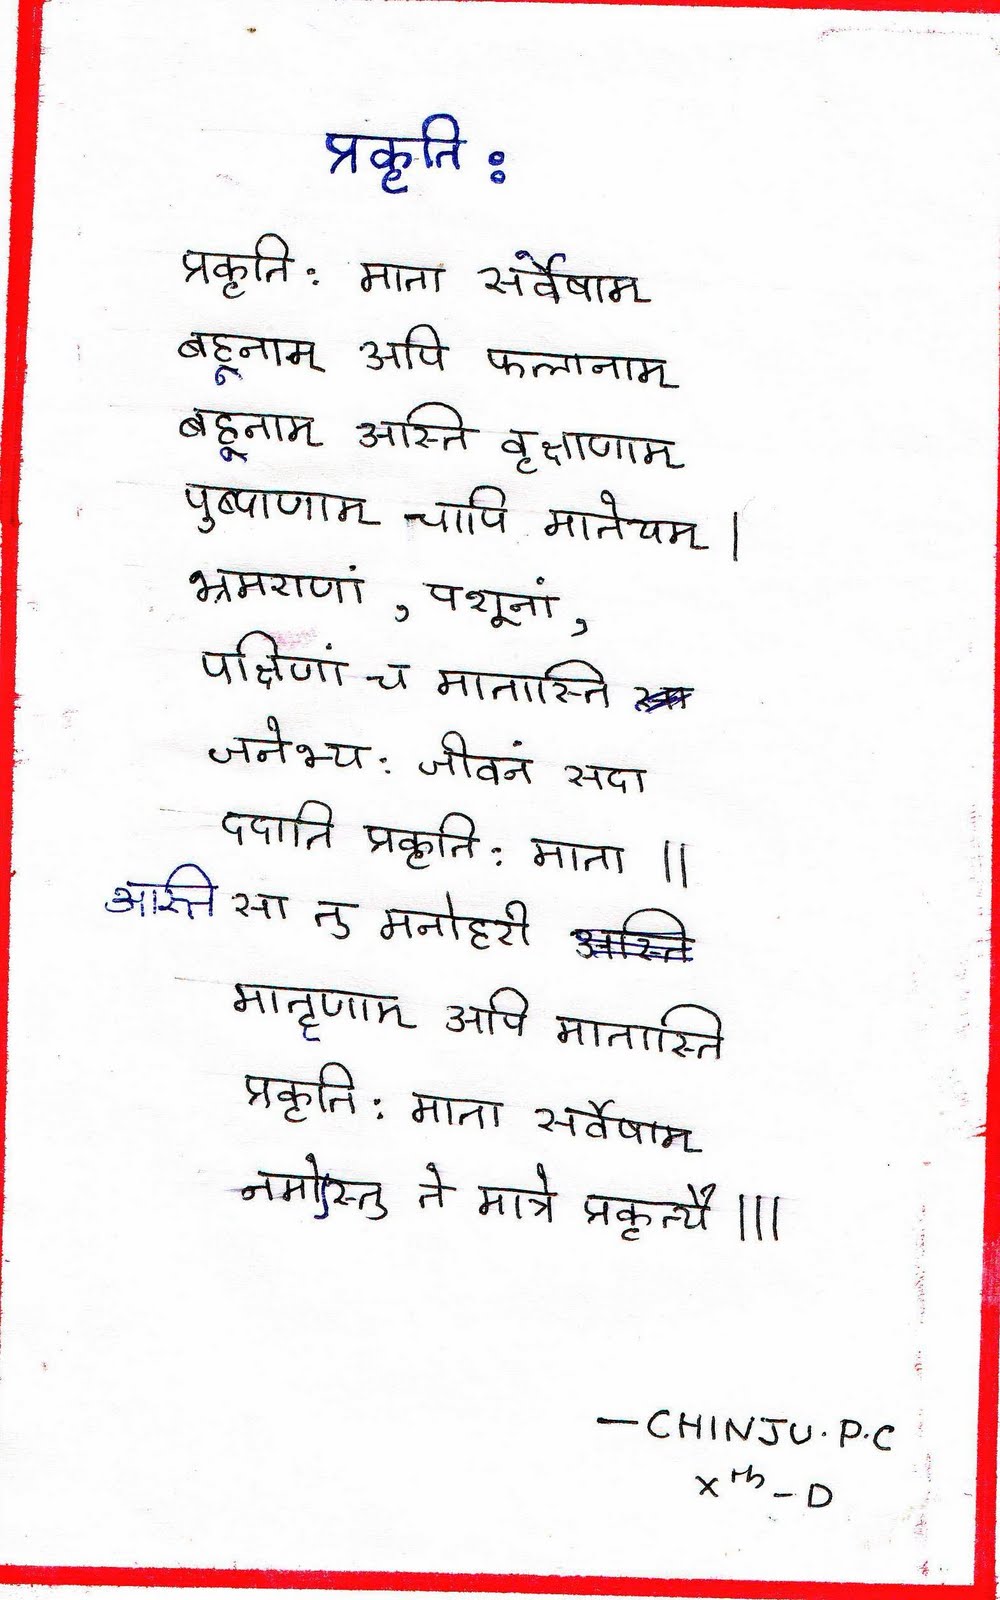 प्रकृति :
प्रकृति : माता सर्वेषाम्
बहूनाम् अपि फलानाम्
बहूनाम् अस्ति वृक्षाणाम्
पुष्पाणाम् चापि मातेयम् |
भ्रमराणां , पशूनां ,
पक्षिणां च मातास्ति
जनेभ्य : जीवनं सदा
ददाति प्रकृति : माता ||
अस्ति सा तु मनोहरी अस्ति
मातॄणाम् अपि मातास्ति
प्रकृति : माता सर्वेषाम्
नमोस्तु ते मात्रे प्रकृत्यै |||
— CHINJU . P . C
Xth – D